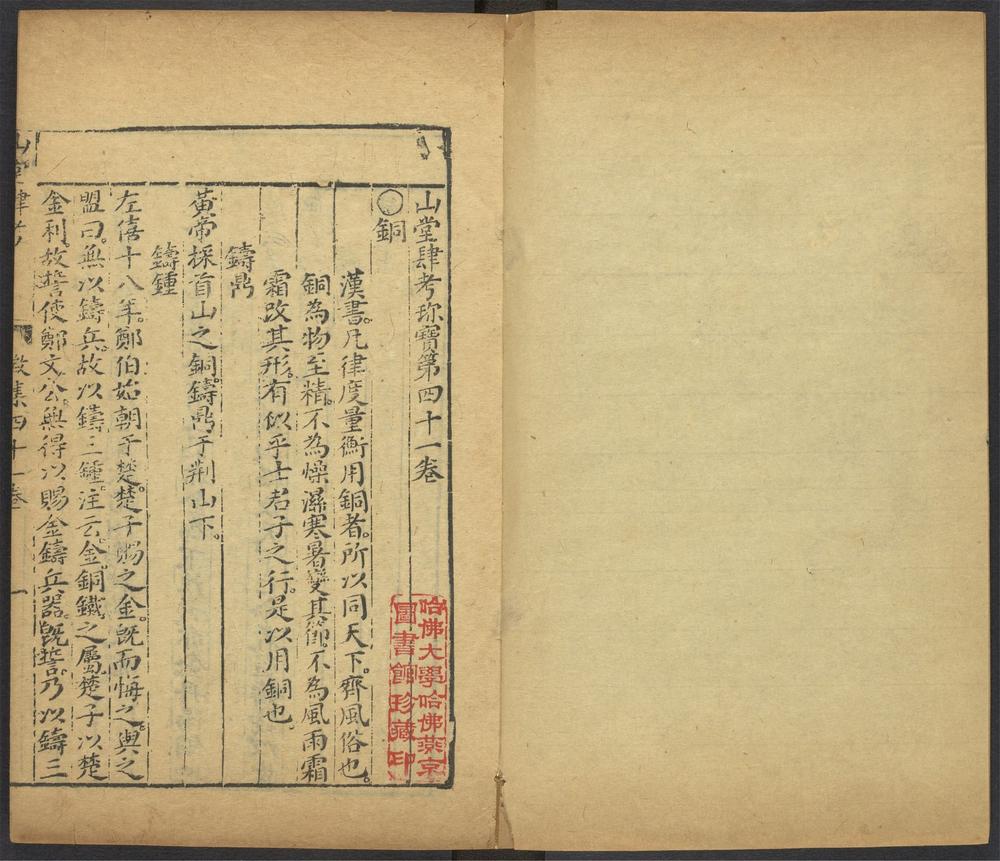 山堂肆考珎寶第四十一卷
○銅
漢書。凡律度量衡用銅者。所以同天下。齊風俗也。
銅為物至精。不為燥濕寒暑變其節。不為風雨霜
霜改其形。有似乎士君子之行。是以用銅也。
鑄鼎
黃帝採首山之銅。鑄鼎于荆山下。
鑄鍾
左僖十八年。鄭伯始朝于楚。楚子賜之金。既而悔之。與之
盟曰。無以鑄兵。故以鑄三鍾。注云。金銅鐵之屬。楚子以楚
金利。故誓使鄭文公。無得以賜金鑄兵器。既誓。乃以鑄三
山堂肆考
徵集四十一卷
一
哈佛大學哈佛燕京
圖書館珍藏印